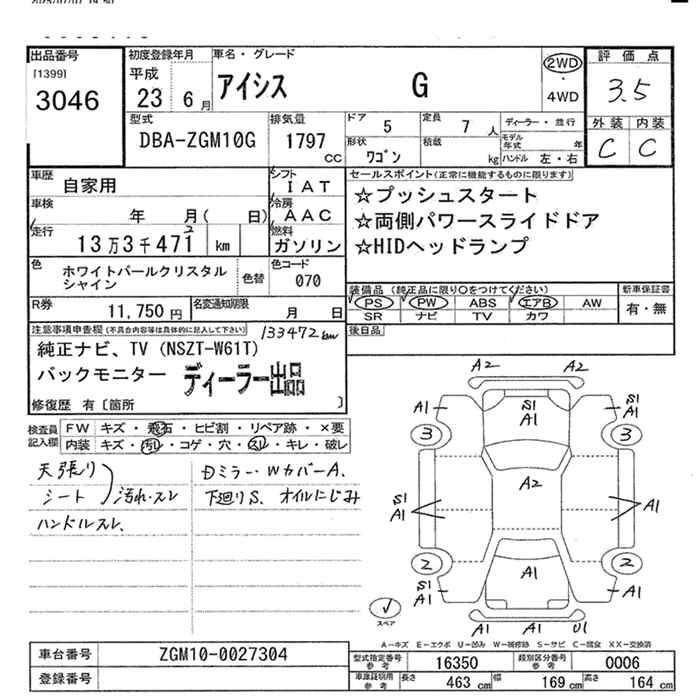 出品番号
[1399]
3046
初度登録年月
平成
23 6月
車名・グレード
アイシス G
2WD
・
4WD
評価点
3.5
外装 内装
C C
型式
DBA-ZGM10G
排気量
1797
CC
ドア 5
定員 7人
ディーラー・並行
形状
ワゴン
積載
kg
モデル年式 年
ハンドル 左・右
車歴
自家用
シフト
IAT
車検
年 月( 日)
冷房
AAC
走行
13万3千471 km
2
燃料
ガソリン
色
ホワイトパールクリスタル
シャイン
色替
色コード
070
R券
11,750円
名変通知期限
月 日
セールスポイント(正常に機能するものに限ります)
☆プッシュスタート
☆両側パワースライドドア
☆HIDヘッドランプ
装備品 (純正品に限り○をつけてください)
PS PW ABS エアB AW
SR ナビ TV カワ
新車保証書
有・無
後日品
注意事項申告欄(不具合内容等は具体的に記入して下さい)
133472km
純正ナビ、TV (NSZT-W61T)
バックモニター ディーラー出品
修復歴 有〔箇所 〕
検査員
記入欄
FW キズ・飛石・ヒビ割・リペア跡・×要
内装 キズ・汚れ・コゲ・穴・スレ・キレ・破レ
天張り
シート
汚れ・スレ
ハンドルスレ、
Dミラー・WカバーA、
下廻りS、オイルにじみ
A2 A2
A1 S1 A1 S1 A1
3 3
A2
S1 A1 A1
2 2
S1 A1 A1 A1
A1 A1 U1
スペア
A−キズ E−エクボ U−凹み W−補修跡 S−サビ C−腐食 XX−交換済
車台番号
ZGM10-0027304
登録番号
型式指定番号
参考
16350
類別区分番号
参考
0006
車庫証明用
参考
長さ 463 cm 幅 169 cm 高さ 164 cm